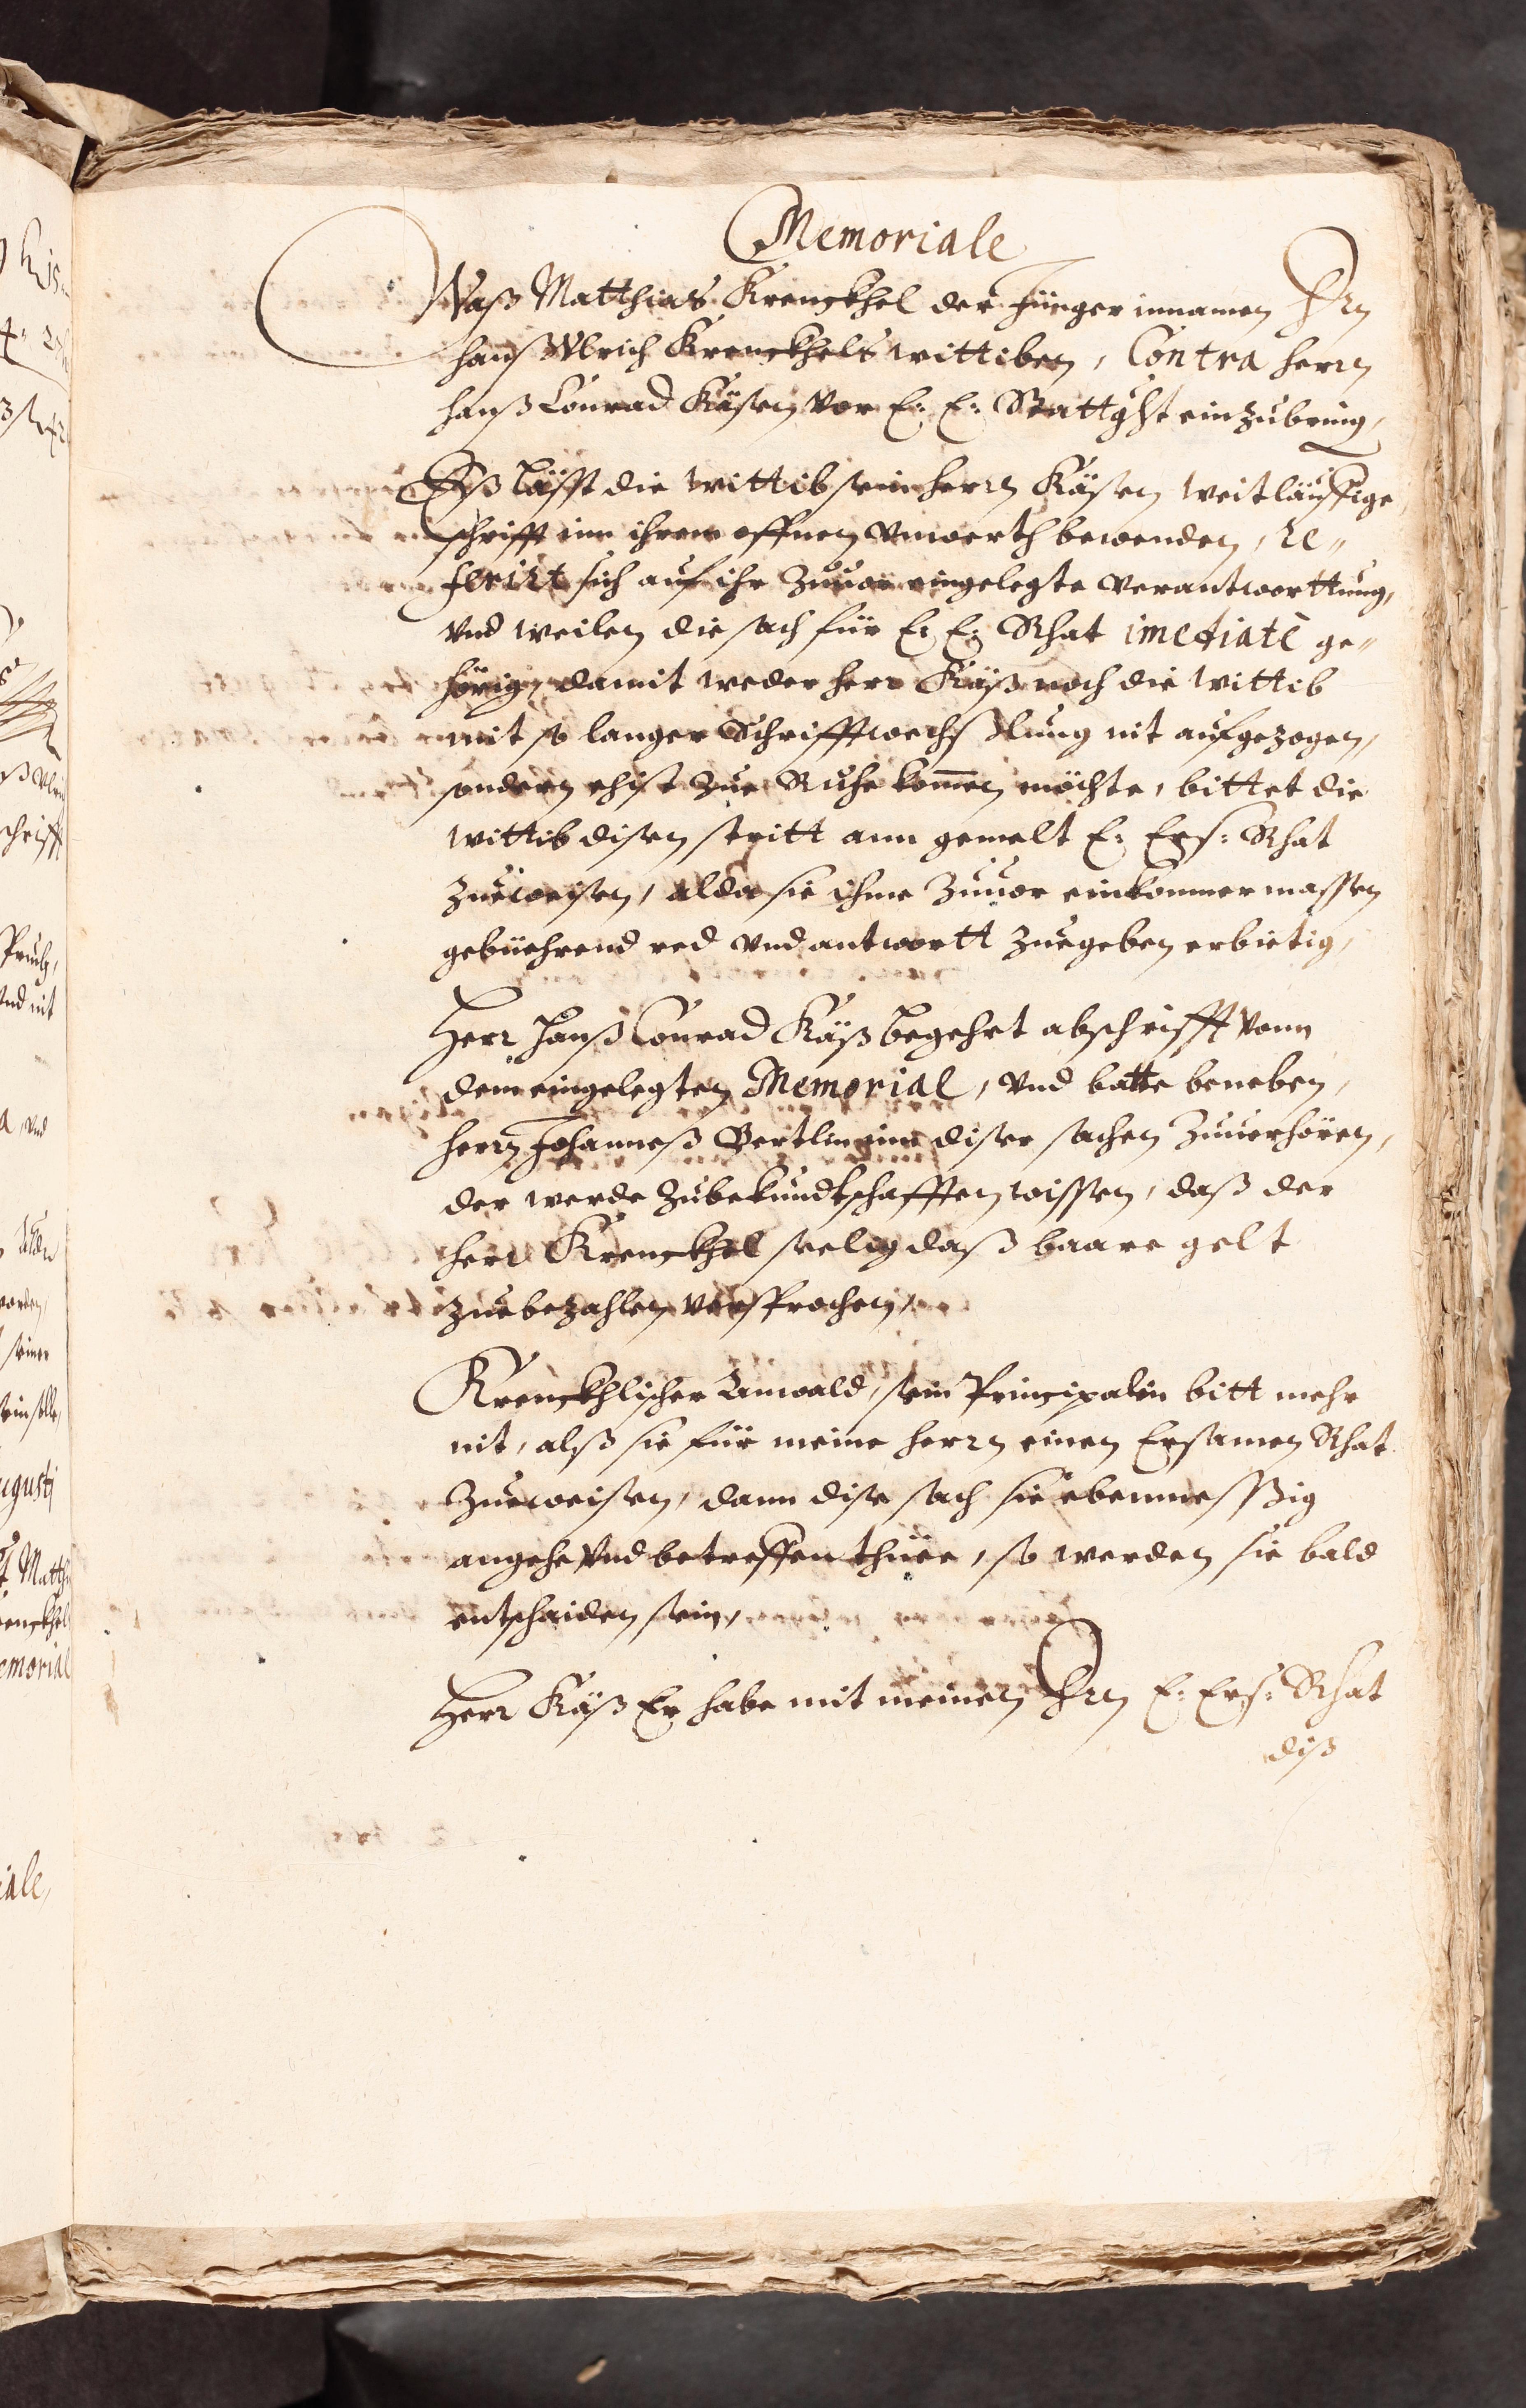 Memoriale
Waß Matthias Krenckhel der Jünger innamen Hrn
hanß Vlrich Krenckhels wittiben, Contra herrn
hanß Conrad Käsen vor E: E: Stattght einzubring,
Eß läßt die wittib sein herrn Käsen weitläuffige
schrifft inn ihrem offnen vnwerth bewenden, re„
feriert sich auf ihr zuuor eingelegte verantworttung,
vnd weilen die sach für E: E: Rhat imediatè ge„
hörig, damit weder herr Käß noch die wittib
mit so langer Schrifftwechßlung nit aufgezogen,
sondern ehist zue Ruhe kommen möchte, bittet die
wittib disen stritt ann gemelt E: Ers: Rhat
zueweisen, alda sie ihme zuuor einkommer massen
gebüehrend red vnd antwortt zuegeben erbietig,
Herr hanß Conrad Käß begehrt abschrifft vonn
dem eingelegten Memorial, vnd batte beneben,
herrn Johanneß Bertlin inn diser sachen zuuerhören,
der werde zubekundtschafften wissen, daß der
herr Krenckhel seelig daß baare gelt
zuebezahlen versprochen,
Krenckhlischer Anwald, sein Principalin bitt mehr
nit, alß sie für meine herrn einen Ersamen Rhat
zueweisen, dann dise sach sie ebenmessßig
angehe vnd betreffen thüee, so werden sie bald
entschaiden sein,
Herr Käß Er habe mit meinen Hrn E: Ers: Rhat
diß